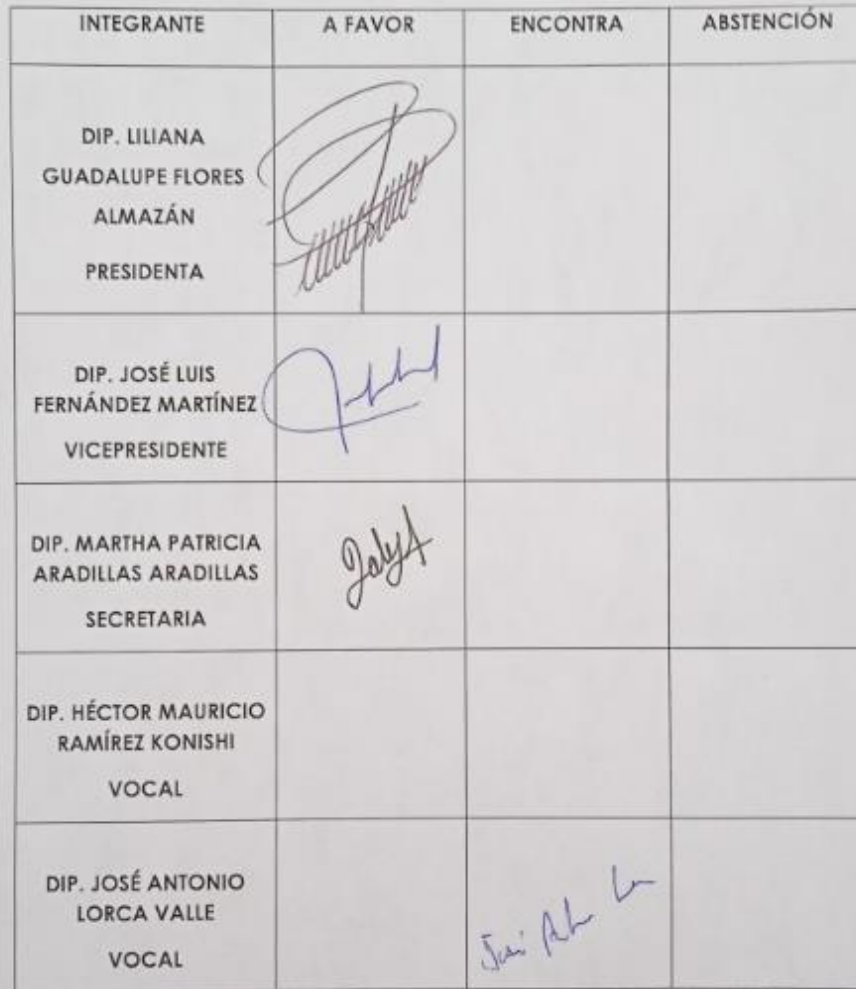 INTEGRANTE A FAVOR ENCONTRA ABSTENCIÓN
DIP. LILIANA
GUADALUPE FLORES
ALMAZÁN
PRESIDENTA
DIP. JOSÉ LUIS
FERNÁNDEZ MARTÍNEZ
VICEPRESIDENTE
DIP. MARTHA PATRICIA
ARADILLAS ARADILLAS
SECRETARIA
DIP. HÉCTOR MAURICIO
RAMÍREZ KONISHI
VOCAL
DIP. JOSÉ ANTONIO
LORCA VALLE
VOCAL